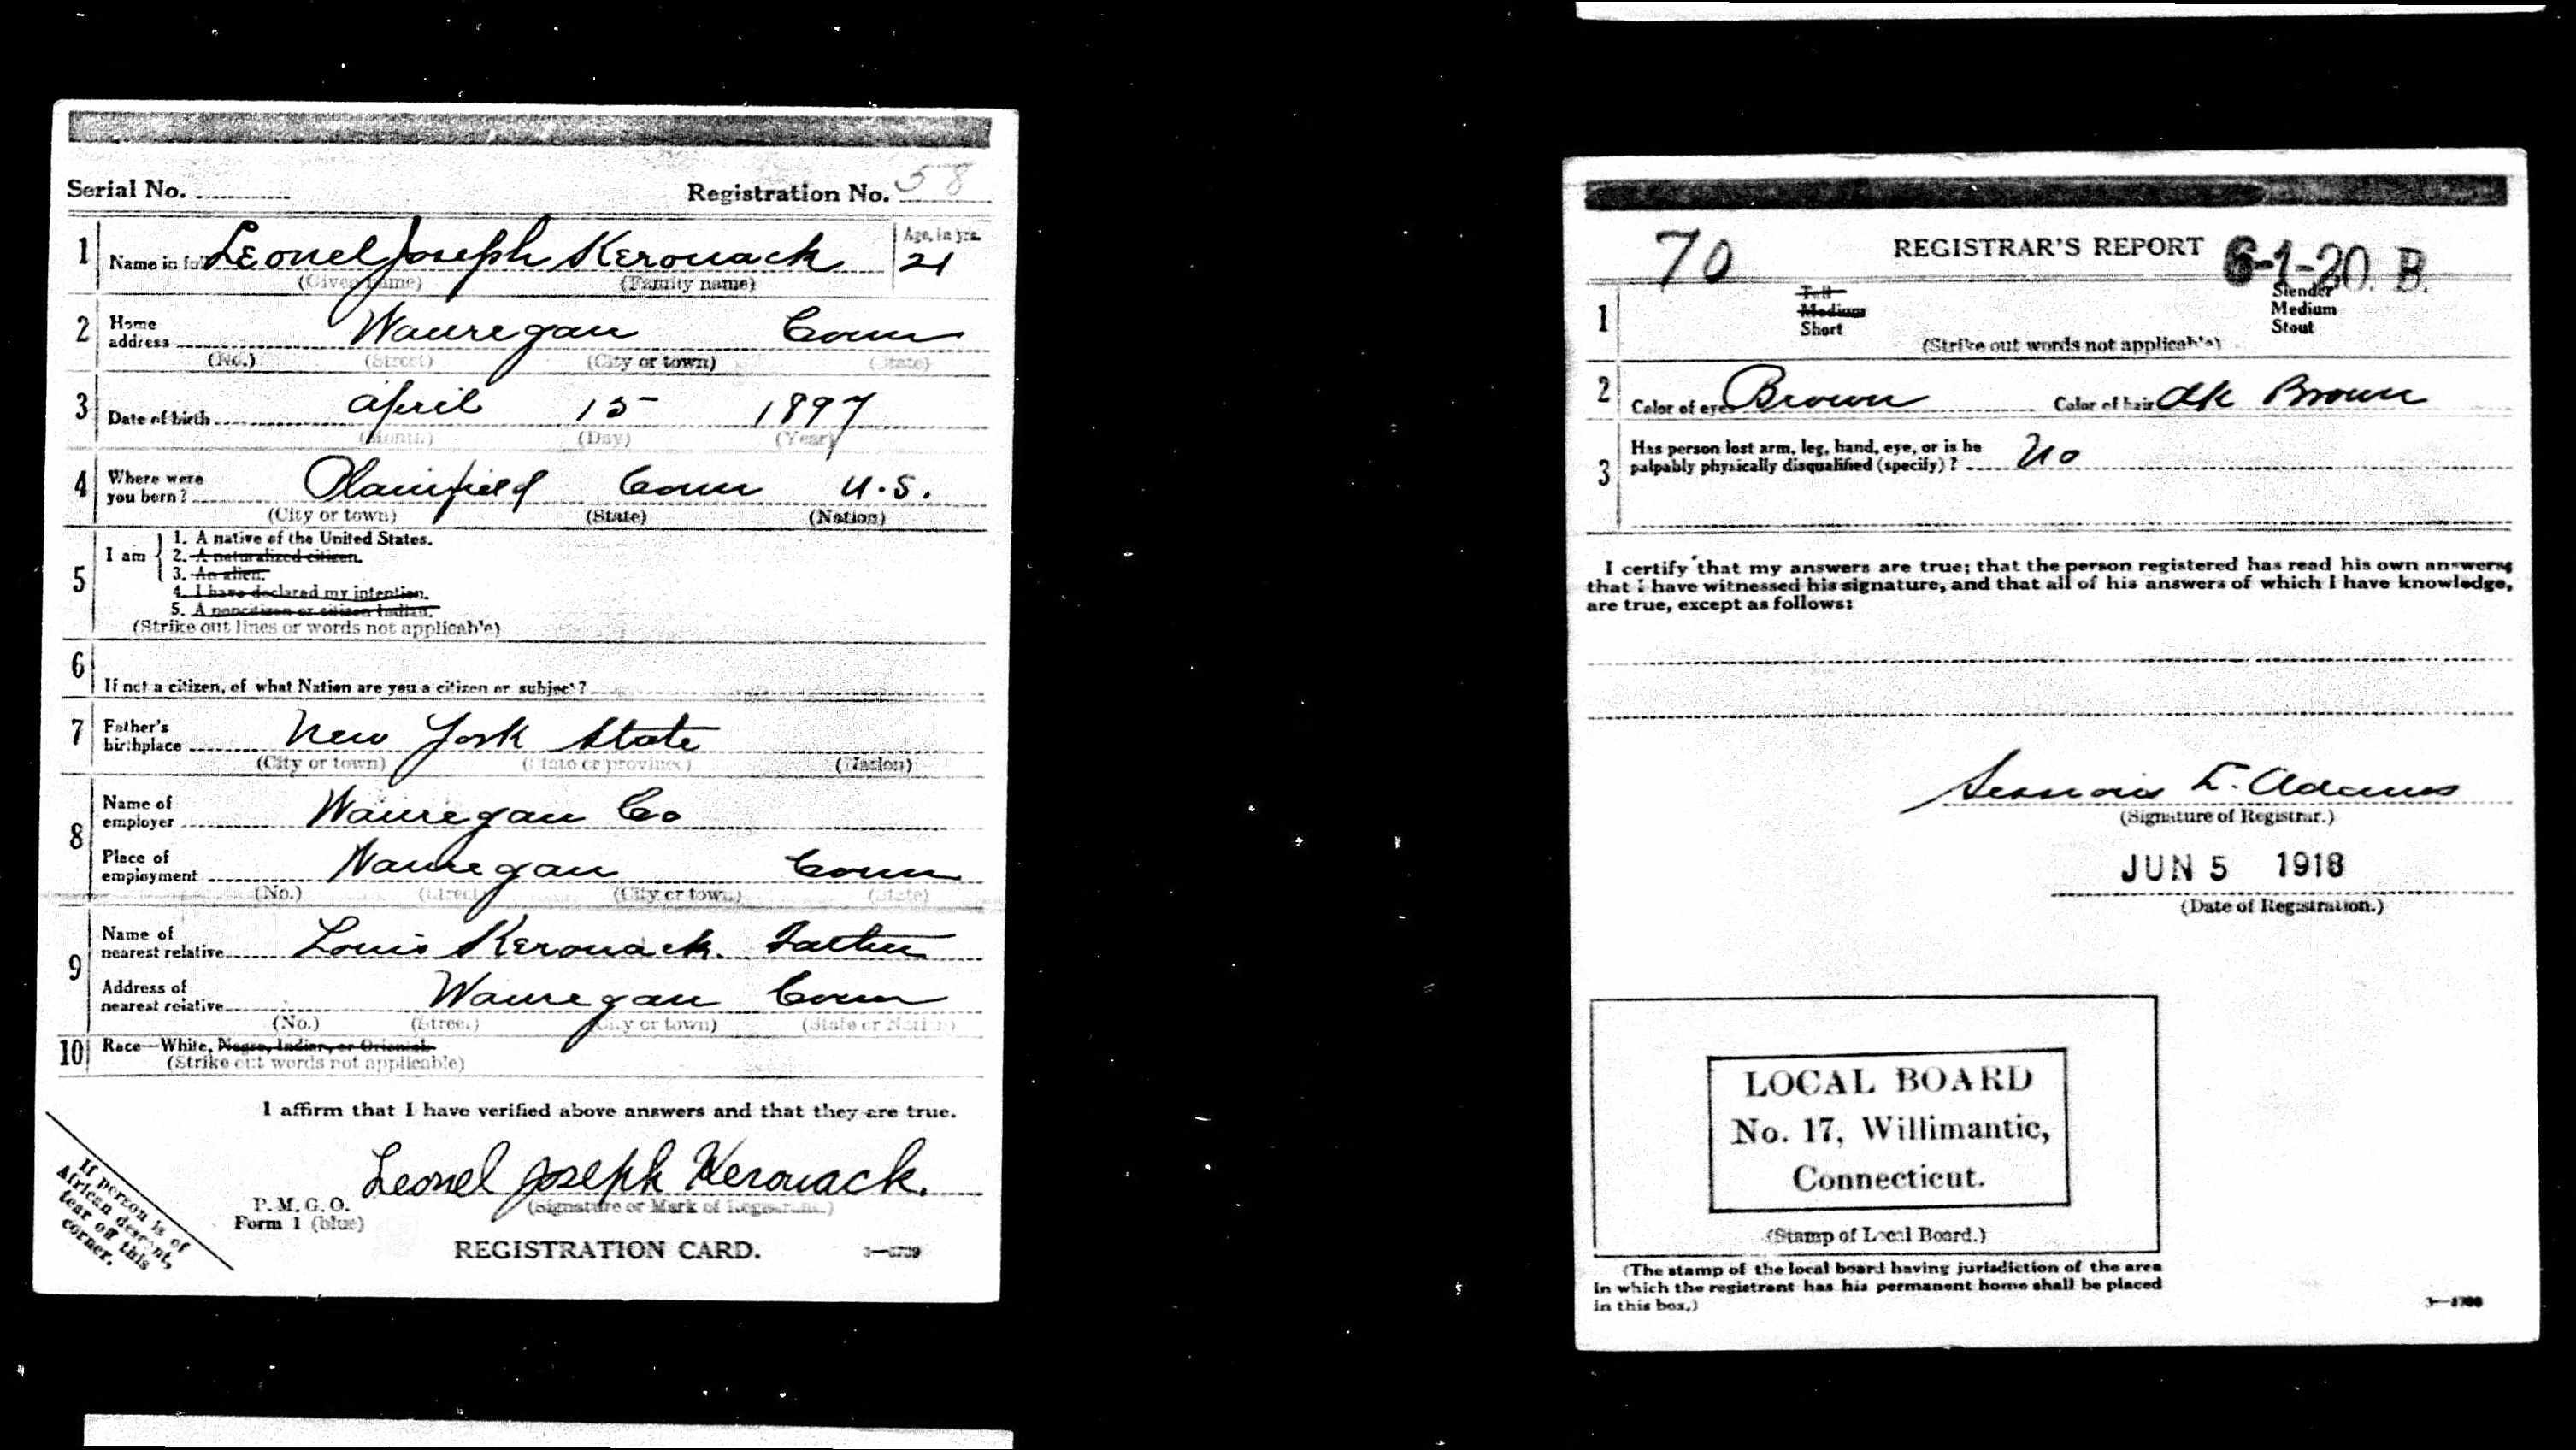 Serial No. Registration No. 58
1 Name in full Leonel Joseph Kerouack Age, in yrs. 21
(Given name) (Family name)
2 Home address Wauregan Conn
(No.) (Street) (City or town) (State)
3 Date of birth April 15 1897
(Month) (Day) (Year)
4 Where were you born? Plainfield Conn U.S.
(City or town) (State) (Nation)
5 I am
1. A native of the United States.
2. A naturalized citizen.
3. An alien.
4. I have declared my intention.
5. A noncitizen or citizen Indian.
(Strike out lines or words not applicable)
6 If not a citizen, of what Nation are you a citizen or subject?
7 Father's birthplace New York State
(City or town) (State or province) (Nation)
8 Name of employer Wauregan Co
Place of employment Wauregan Conn
(No.) (Street) (City or town) (State)
9 Name of nearest relative Louis Kerouack. Father
Address of nearest relative Wauregan Conn
(No.) (Street) (City or town) (State or Nation)
10 Race—White, Negro, Indian, or Oriental.
(Strike out words not applicable)
I affirm that I have verified above answers and that they are true.
Leonel Joseph Kerouack.
P. M. G. O. (Signature or Mark of Registrant.)
Form 1 (blue)
REGISTRATION CARD.
If person is of
African descent,
tear off this
corner.
70 REGISTRAR'S REPORT 6-1-20. B.
1 Tall Slender
Medium Medium
Short Stout
(Strike out words not applicable)
2 Color of eyes Brown Color of hair dk Brown
3 Has person lost arm, leg, hand, eye, or is he
palpably physically disqualified (specify)? No
I certify that my answers are true; that the person registered has read his own answers
that I have witnessed his signature, and that all of his answers of which I have knowledge,
are true, except as follows:
L. Adams
(Signature of Registrar.)
JUN 5 1918
(Date of Registration.)
LOCAL BOARD
No. 17, Willimantic,
Connecticut.
(Stamp of Local Board.)
(The stamp of the local board having jurisdiction of the area
in which the registrant has his permanent home shall be placed
in this box.)